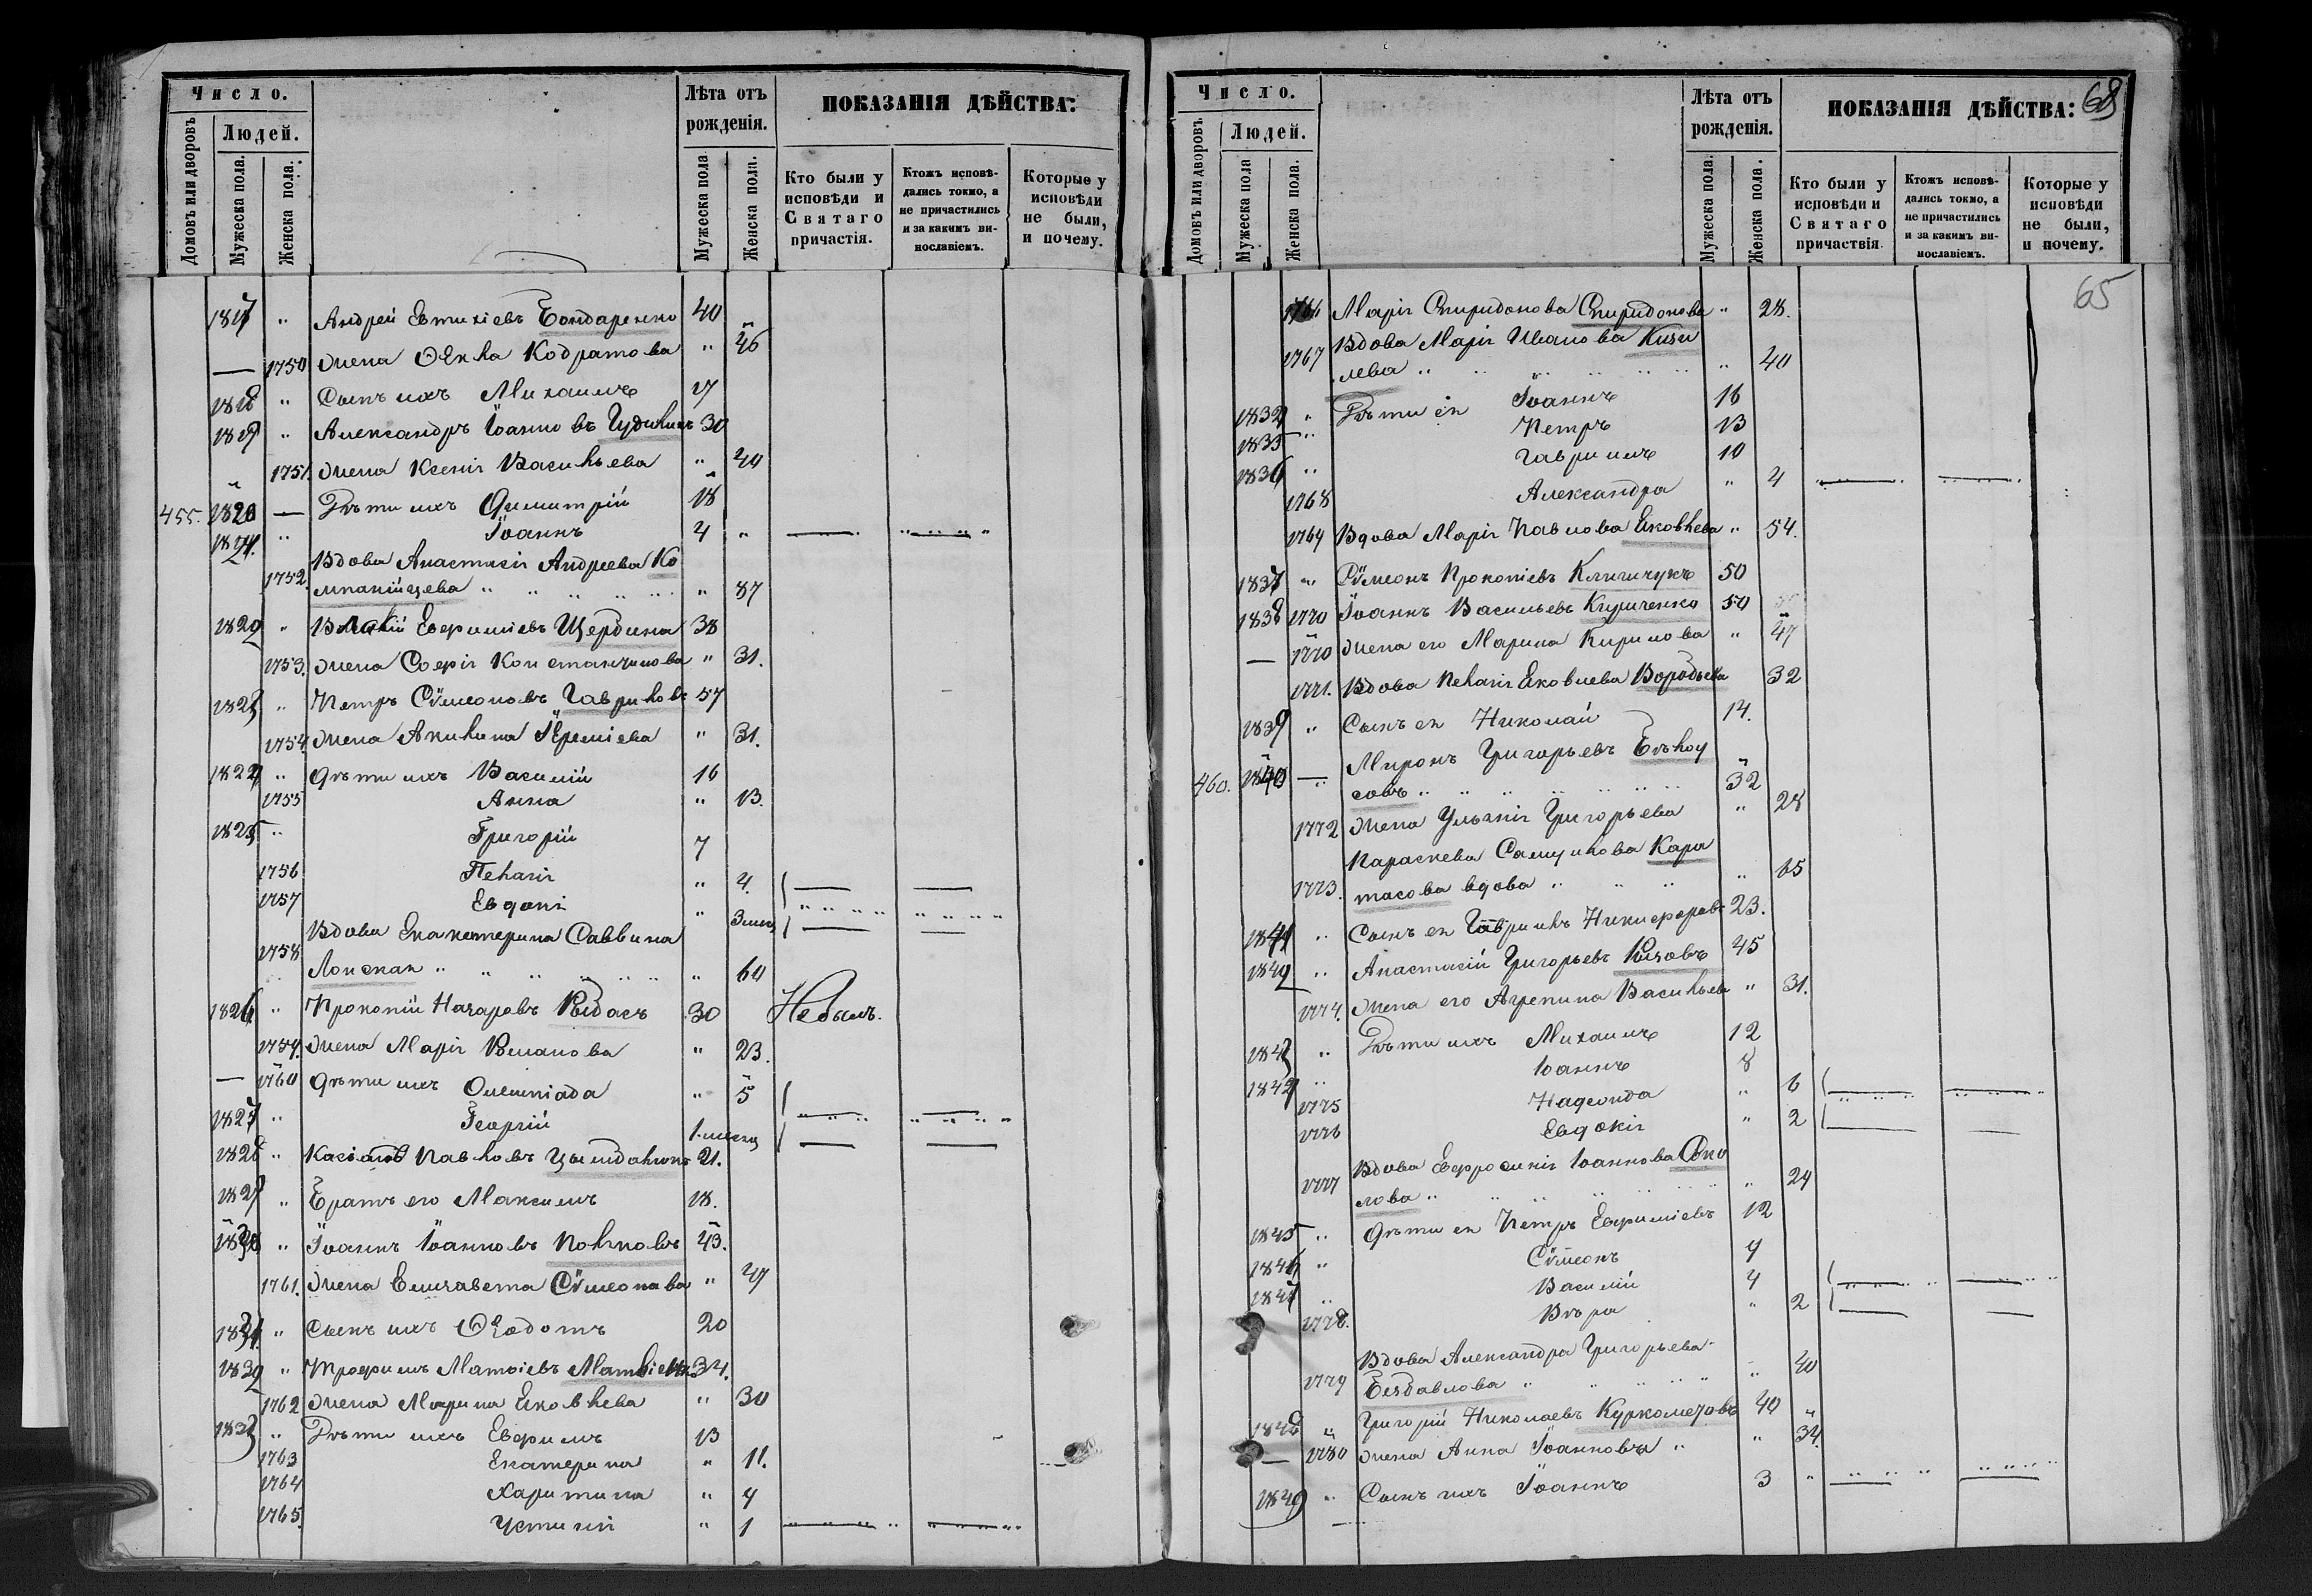 Число.
Людей.
Домовъ или дворовъ
Мужеска пола.
Женска пола.
Лѣта отъ
рожденія.
Мужеска пола
Женска пола.
ПОКАЗАНІЯ ДѢЙСТВА:
Кто были у
исповѣди и
Святаго
причастія.
Ктожъ исповѣ-
дались токмо, а
не причастились
и за какимъ ви-
нословіемъ.
Которые у
исповѣди
не были,
и почему.
1817 " Андрей Евтихіевъ Бондаренко 40
— 1750 Жена Ѳекла Кодратова " 46
1818 " Сынъ ихъ Михаилъ 17
1819 " Александръ Іоанновъ 30
1751. Жена Ксенія Васильева " 40
455. 1820 — Дѣти ихъ Димитрій 18
1821. " Іоаннъ 4 "
Вдова Анастасія Андреева Ко
1752. мпанійцева " " " " " 87
1822 " Евфиміевъ Щербина 38
1753. Жена Софія Констанчинова " 31.
1823 " Петръ Сѵмеоновъ Гавриловъ 57
1754. Жена Акилина Іереміева " 31.
1824 " Дѣти ихъ Василій 16
1755 Анна " 13.
1825 " Григорій 7
1756 Пелагія " 4
1757 Евдокі " 3 мец
Вдова Екатерина Саввина
1758 Лонская " " " " " 60
1826 " Прокопій Назаровъ 30 Небылъ.
1759. Жена Марія Романова " 23.
— 1760 Дѣти ихъ Олимпіада " 5
1827 " Георгій 1 месец
1828 " Павловъ 21.
1829 " Братъ его Максимъ 18.
1830 " Іоаннъ Іоанновъ 43.
1761. Жена Елизавета Сѵмеонова " 47
1831. " Сынъ ихъ Ѳеодотъ 20
1832 " Трофимъ Матѳіевъ 34.
1762 Жена Марина Яковлева " 30
1833 " Дѣти ихъ Евфимъ 13
1763 Екатерина " 11.
1764 Харитина " 7
1765. " 1
68
Число.
Людей.
Домовъ или дворовъ.
Мужеска пола
Женска пола.
Лѣта отъ
рожденія.
Мужеска пола.
Женска пола.
ПОКАЗАНІЯ ДѢЙСТВА:
Кто были у
исповѣди и
Святаго
причастія
Ктожъ исповѣ-
дались токмо, а
не причастились
и за какимъ ви-
нославіемъ.
Которые у
исповѣди
не были,
и почему.
65
1766 Марія Спиридонова Спиридонова " 28.
Вдова Марія Иванова Кизи
1767 лева " " " " " " 40
1832 " Дѣти ея Іоаннъ 16
1835 " Петръ 13
1836 " Гавриилъ 10
1768 Александра " 4
1769 Вдова Марія Павлова Яковлева " 54.
1837 " Сѵмеонъ Прокопіевъ 50
1838 1770 Іоаннъ Васильевъ Кириченко 50
— 1770 Жена его Марина Кирилова " 47
1771. Вдова Пелагія Яковлева Воробьева 32
1839 " Сынъ ея Николай 14.
Миронъ Григорьевъ Бѣлоу
460. 1840 — совъ " " " " " 32
1772 Жена Ульянія Григорьева " 28
Параскева Кара
1773. тасова вдова " " " " 65
1841 " Сынъ ея Гавриилъ Никифоровъ 23.
1842 " Анастасій Григорьевъ 45
1774. Жена его Агрепина Васильева " 31.
1843 " Дѣти ихъ Михаилъ 12
1844 " Іоаннъ 8
1775 Надежда " 6
1776 Евдокія " 2
Вдова Евфросинія Іоаннова Соко
1777 лова " " " " " " 24
1845 " Дѣти ея Петръ Евфиміевъ 12
1846 " Сѵмеонъ 7
1847 " Василій 4
1778. Вѣра " 2
Вдова Александра Григорьева
1779 " " " " " 40
1848 " Григорій Николаевъ Куркометовъ 40
— 1780 Жена Анна Іоаннова " " 34.
1849 " Сынъ ихъ Іоаннъ 3 "